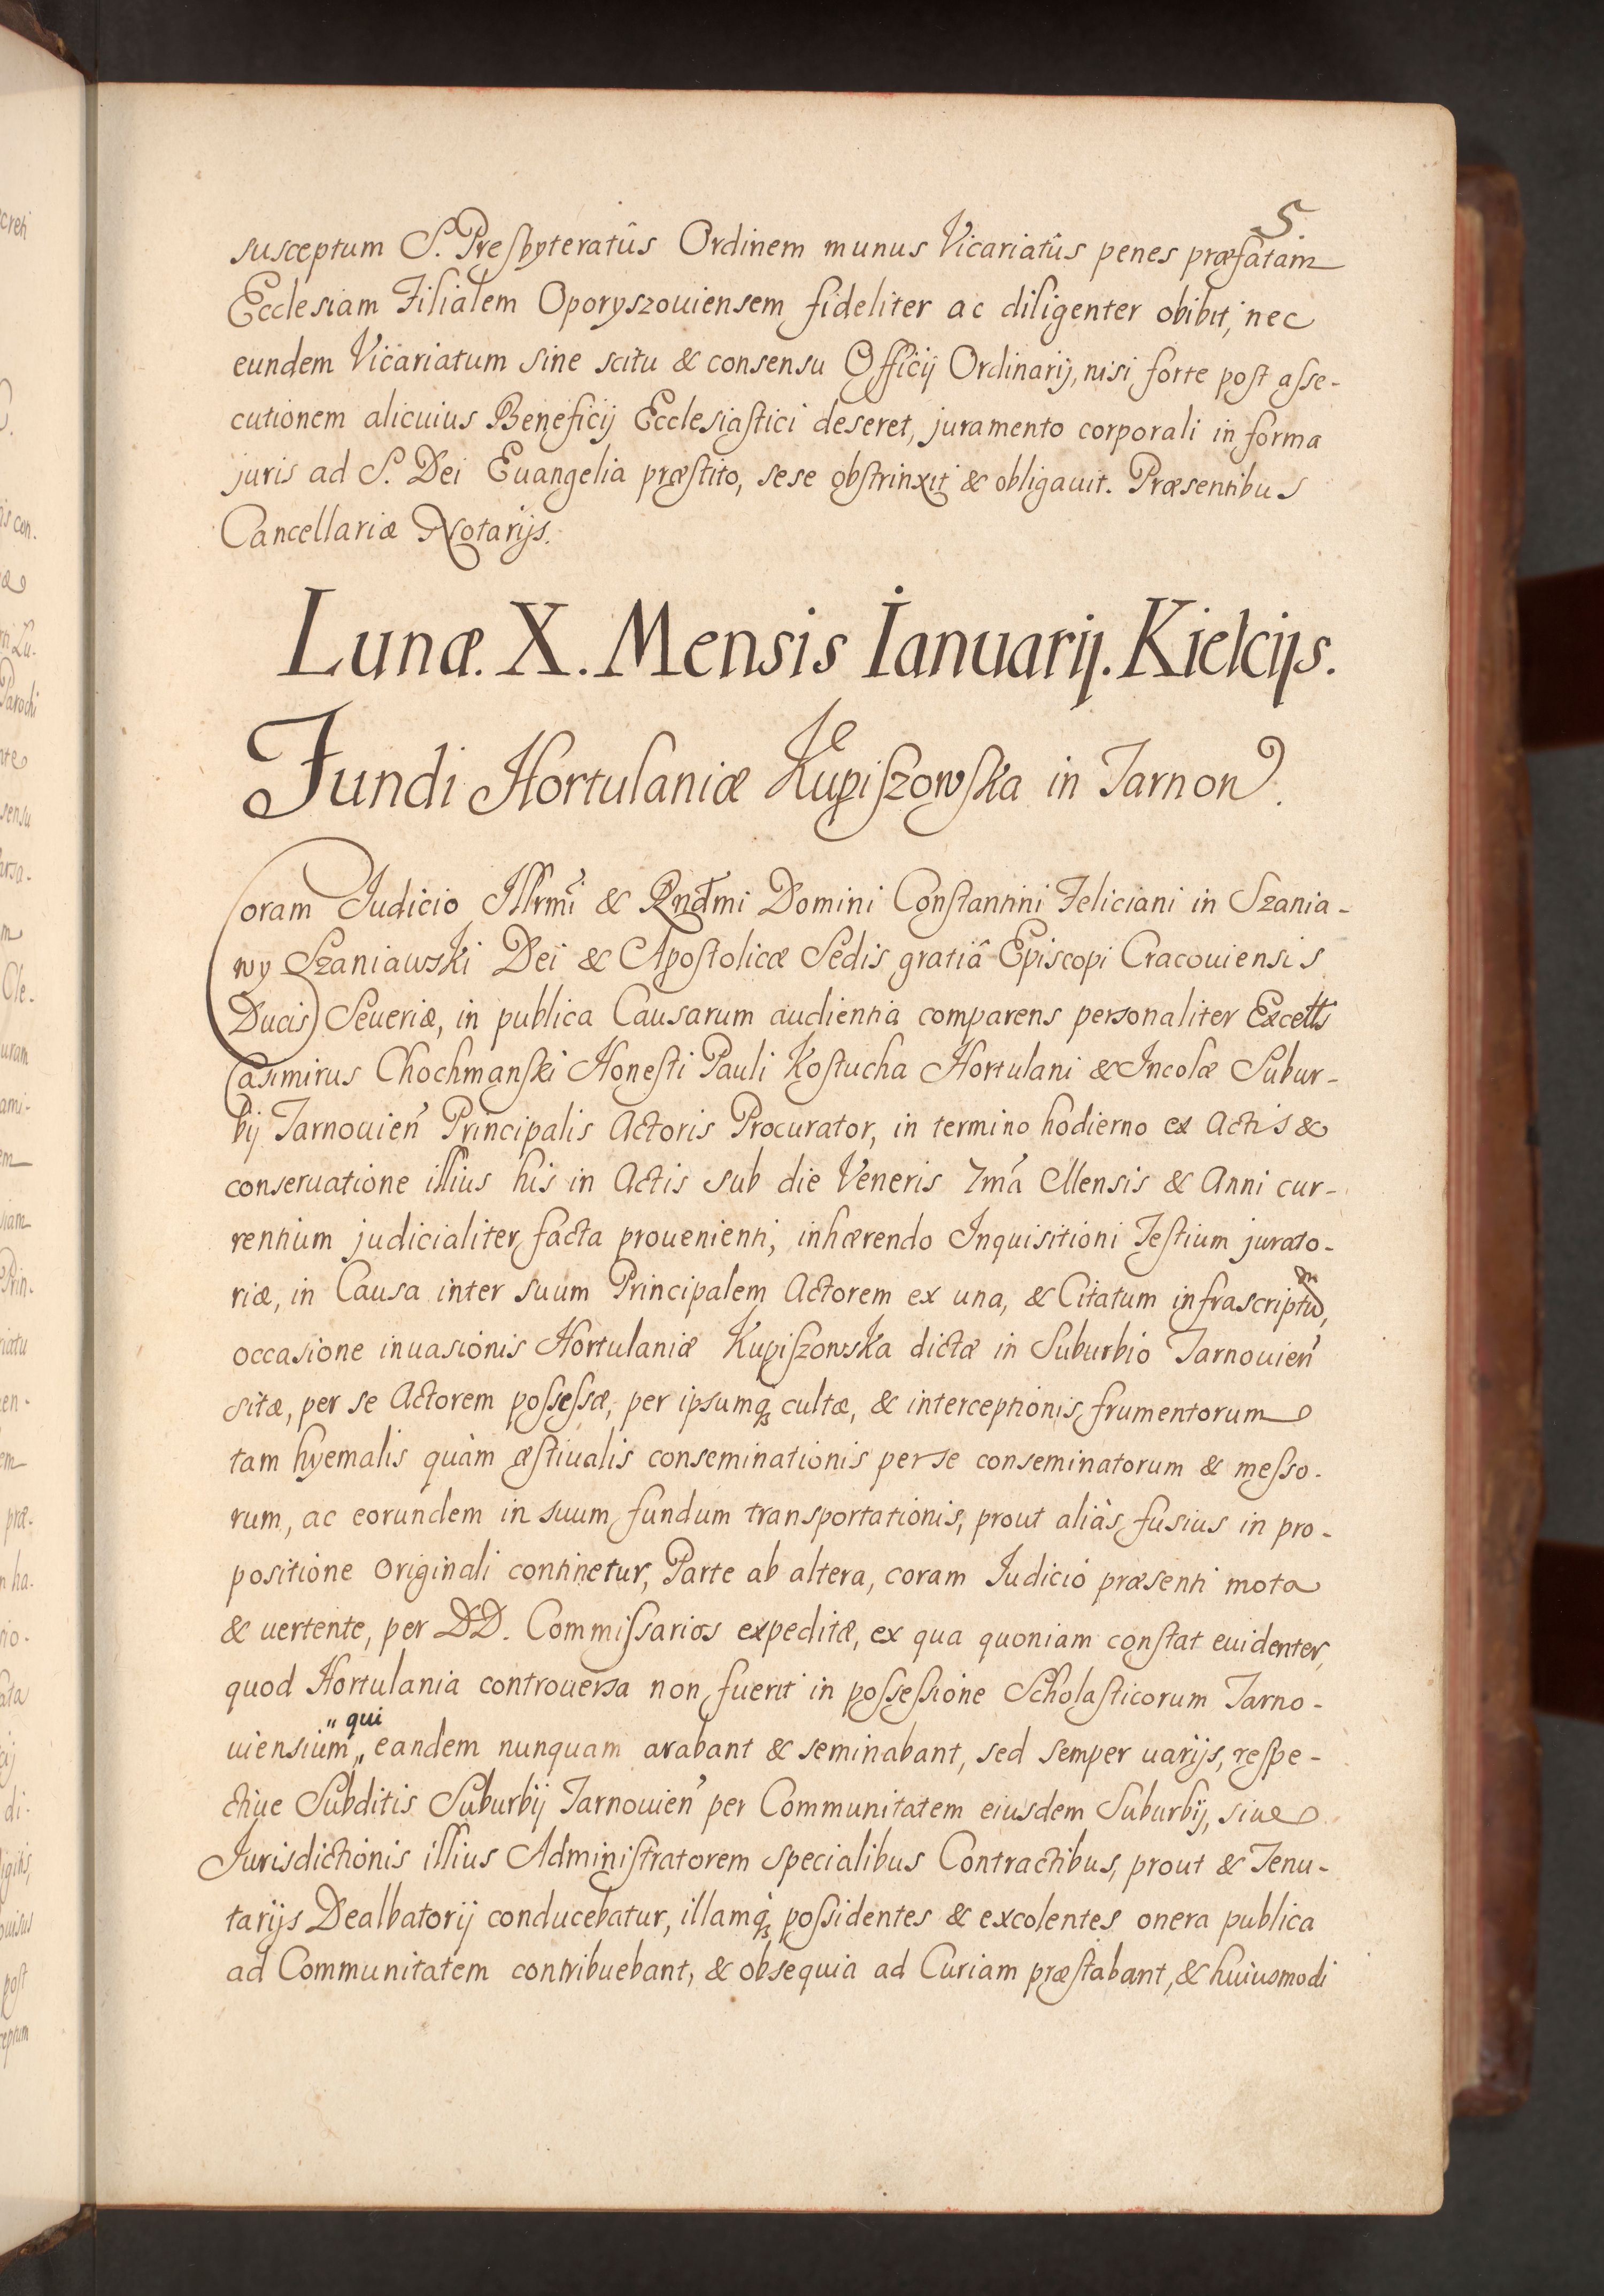 5.
susceptum S. Presbyteratûs Ordinem munus Vicariatûs penes præfatam
Ecclesiam Filialem Oporyszouiensem fideliter ac diligenter obibit, nec
eundem Vicariatum sine scitu & consensu Officij Ordinarij, nisi forte post asse-
cutionem alicuius Beneficij Ecclesiastici deseret, juramento corporali in forma
juris ad S. Dei Euangelia præstito, sese obstrinxit & obligauit. Præsentibus
Cancellariæ Notarijs.
Lunæ. X. Mensis Ianuarij. Kielcijs.
Fundi Hortulaniæ Kupiszowska in Tarnon.
Coram Iudicio Illrmi & Rndmi Domini Constantini Feliciani in Szania-
wy Szaniawski Dei & Apostolicæ Sedis gratiâ Episcopi Cracouiensis
Ducis Seueriæ, in publica Causarum audientia comparens personaliter Excells
Casimirus Chochmanski Honesti Pauli Kostucha Hortulani & Incolæ Subur-
bij Tarnouien Principalis Actoris Procurator, in termino hodierno ex Actis &
conseruatione illius his in Actis sub die Veneris 7ma Mensis & Anni cur-
rentium judicialiter facta prouenienti, inhærendo Inquisitioni Testium jurato-
riæ, in Causa inter suum Principalem Actorem ex una, & Citatum infrascriptum,
occasione inuasionis Hortulaniæ Kupiszowska dictæ in Suburbio Tarnouien
sitæ, per se Actorem possessæ, per ipsumq; cultæ, & interceptionis frumentorum
tam hyemalis quàm æstiualis conseminationis per se conseminatorum & messo-
rum, ac eorundem in suum fundum transportationis, prout aliàs fusius in pro-
positione originali continetur, Parte ab altera, coram Iudicio præsenti mota
& uertente, per DD. Commissarios expeditæ, ex qua quoniam constat euidenter,
quod Hortulania controuersa non fuerit in possessione Scholasticorum Tarno-
uiensium qui eandem nunquam arabant & seminabant, sed semper uarijs, respe-
ctiue Subditis Suburbij Tarnouien per Communitatem eiusdem Suburbij, siue
Jurisdictionis illius Administratorem specialibus Contractibus, prout & Tenu-
tarijs Dealbatorij conducebatur, illamq; possidentes & excolentes onera publica
ad Communitatem contribuebant, & obsequia ad Curiam præstabant, & huiusmodi